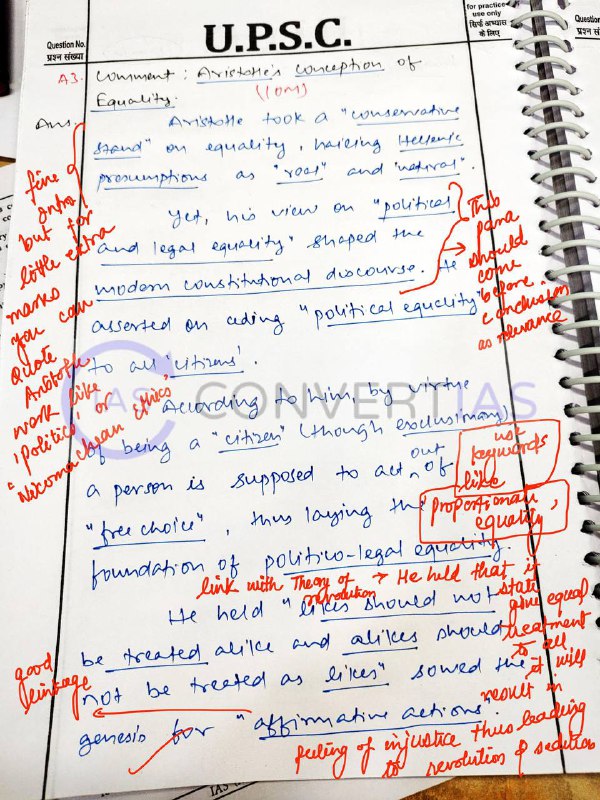 for practice
use only
सिर्फ अभ्यास
के लिए
Question No.
प्रश्न संख्या
U.P.S.C.
Question
प्रश्न संख्
A3. Comment: Aristotle's Conception of
Equality.
(10M)
Ans. Aristotle took a "conservative
stand" on equality, hailing Hellenic
presumptions as "real" and "natural".
fine
intro
but for
little extra
marks
you can
quote
Aristotle
work like
'Politics' or
"Nicomachean Ethics'
Yet, his view on "political
and legal equality" shaped the
modern constitutional discourse. He
asserted on "political equality"
to all 'citizens'.
This
para
should
come
before
conclusion
as relevance
IAS CONVERTIAS
According to him, by virtue
of being a "citizen" (though exclusionary)
a person is supposed to act out of
"free choice", thus laying the
foundation of politico-legal equality.
use
keywords
like
"proportionate
equality"
link with Theory of revolution → He held that if
state
give equal
treatment
to all
it will
result in
feeling of injustice thus leading
to revolution & sedition
He held "likes should not
be treated alike and alikes should
not be treated as likes" sowed the
genesis for "affirmative actions".
good
linkage